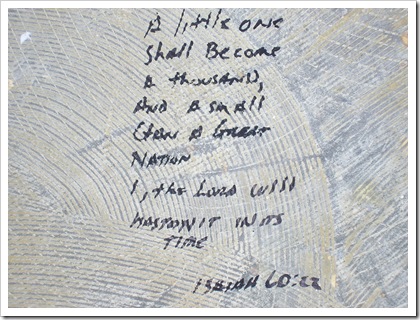 A little one
shall Become
A thousand,
And A small
Clan A Great
Nation
I, the Lord will
hasten it in its
Time
ISAIAH 60:22